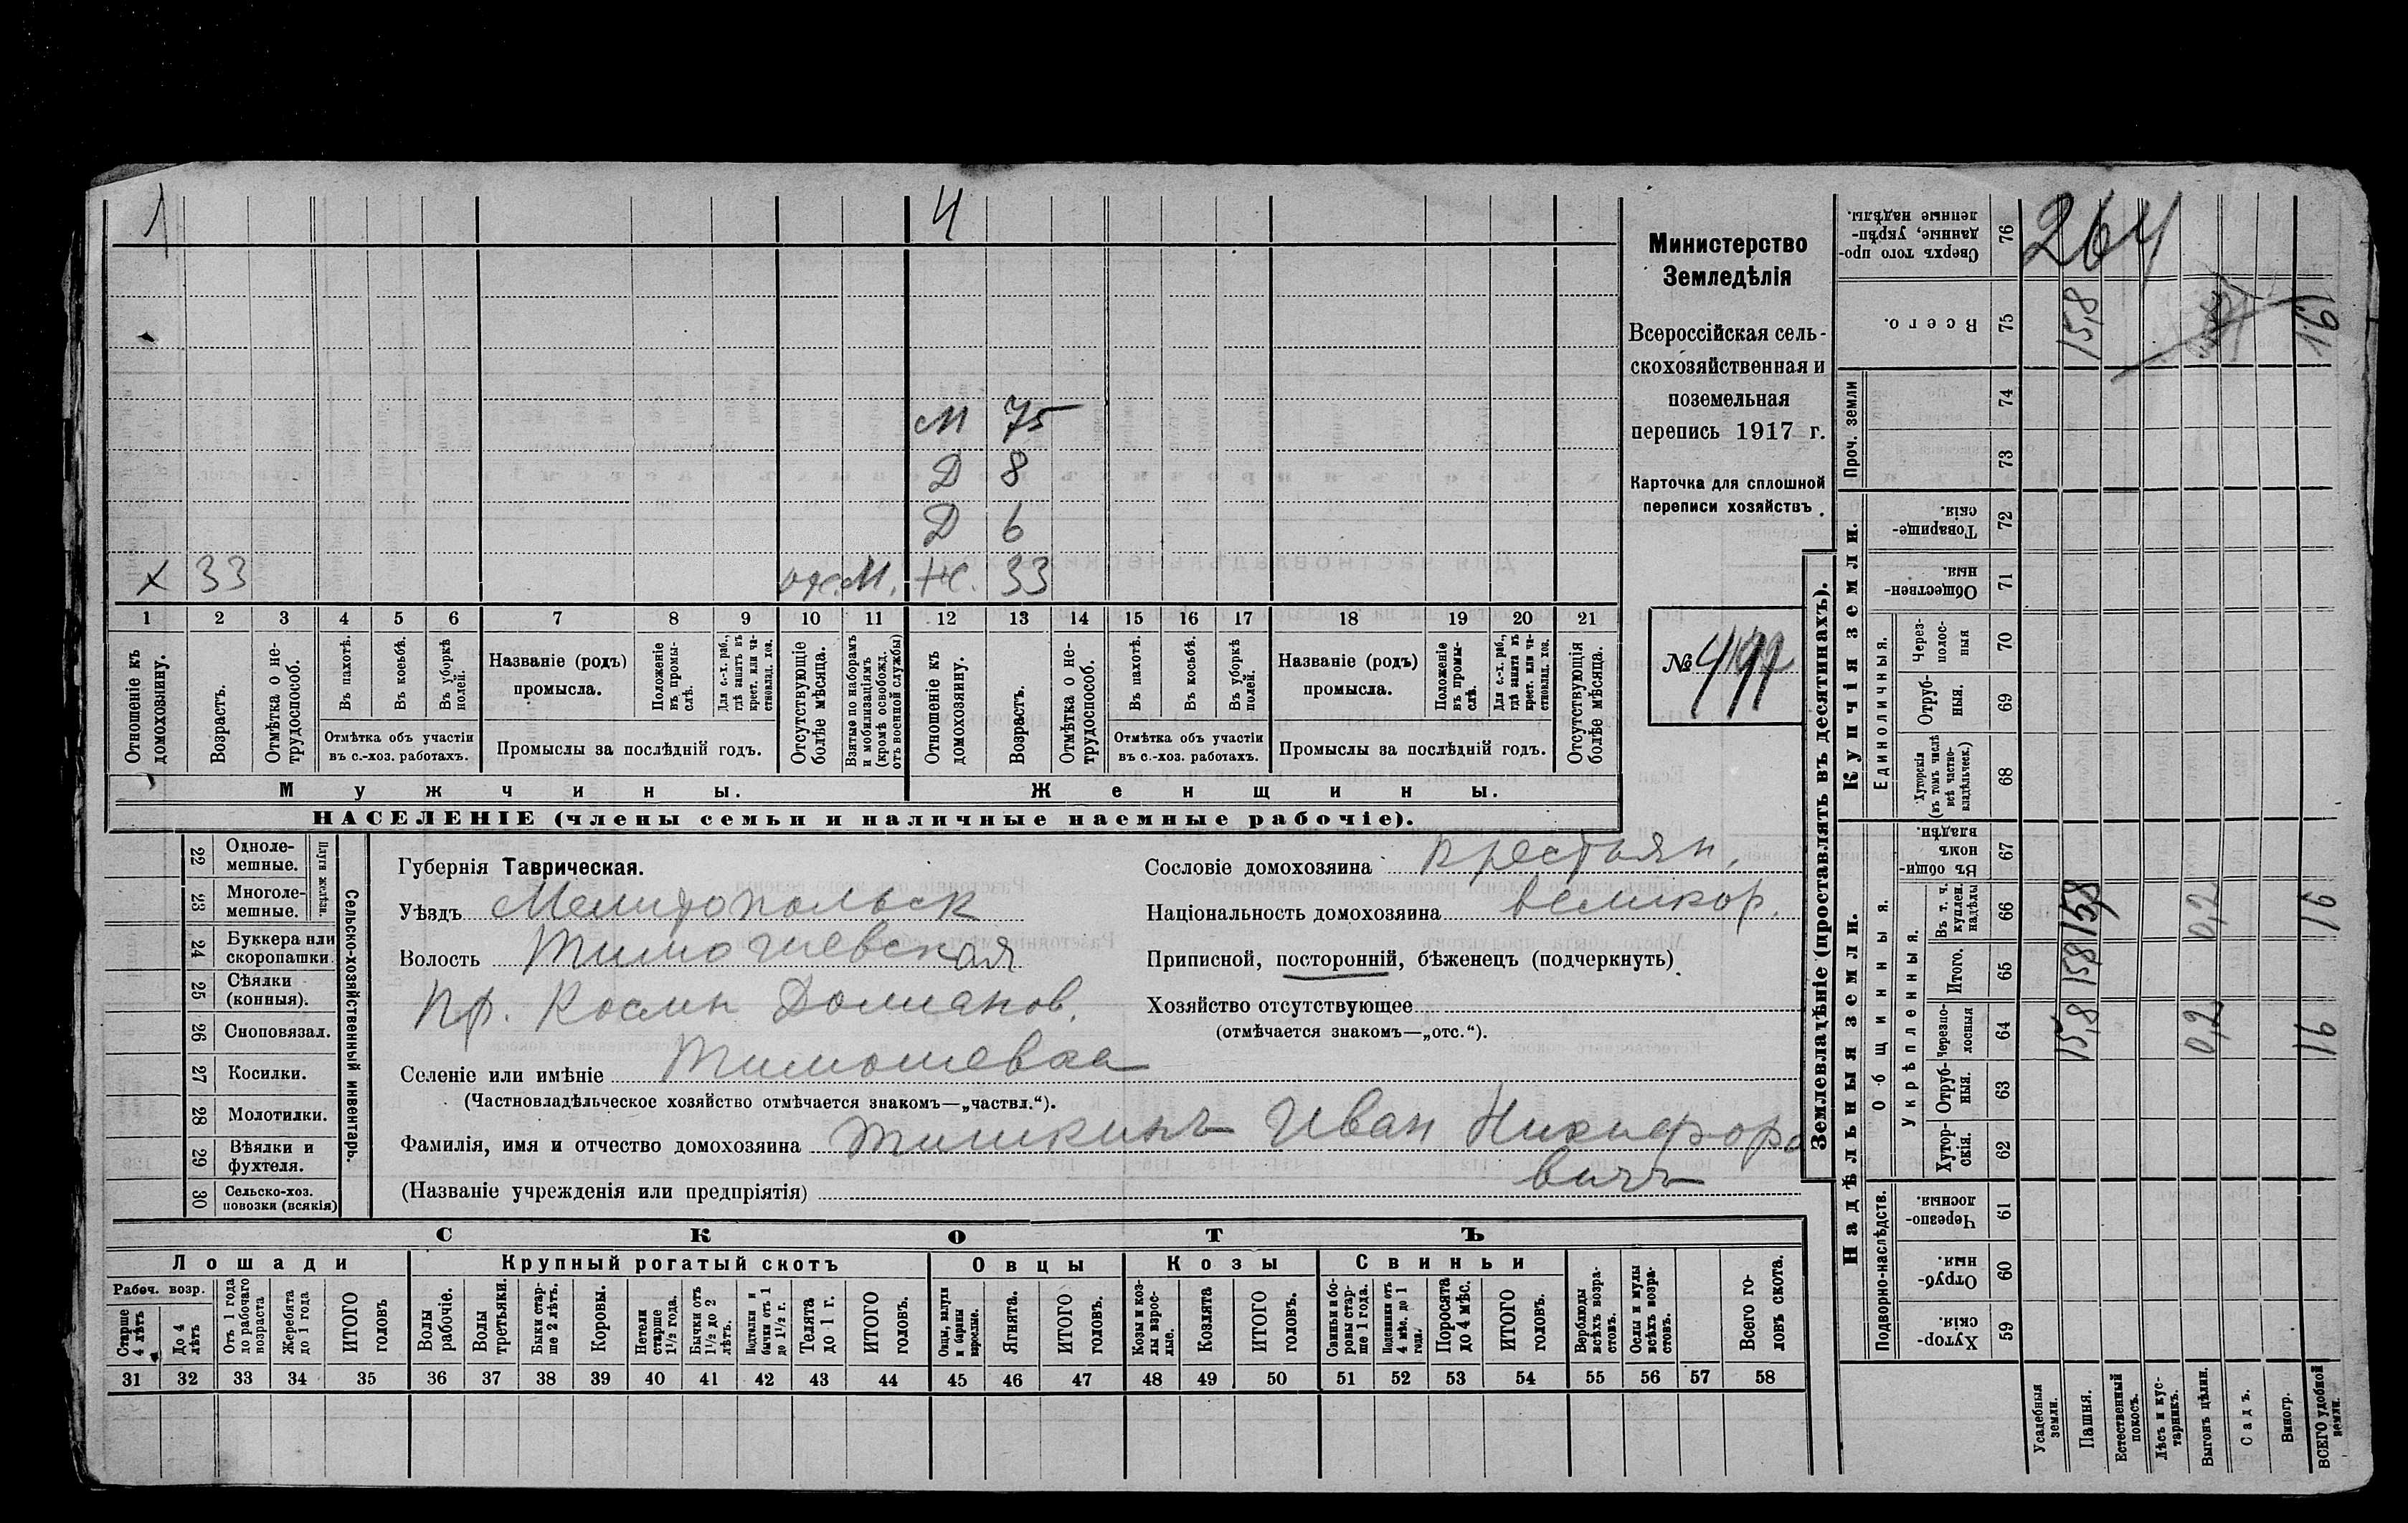 1 4
М 75
Д 8
Д 6
х 33 М. Ж. 33
1 2 3 4 5 6 7 8 9 10 11 12 13 14 15 16 17 18 19 20 21
Отношеніе къ домохозяину.
Возрастъ.
Отмѣтка о нетрудоспособ.
Въ пахотѣ.
Въ косьбѣ.
Въ уборкѣ полей.
Отмѣтка объ участіи
въ с.-хоз. работахъ.
Названіе (родъ)
промысла.
Положеніе въ промыслѣ.
Для с.-х. раб., гдѣ занятъ въ крест. или частновлад. хоз.
Промыслы за послѣдній годъ.
Отсутствующіе болѣе мѣсяца.
Взятые по наборамъ и мобилизаціямъ (кромѣ освобожд. отъ военной службы)
Отношеніе къ домохозяину.
Возрастъ.
Отмѣтка о нетрудоспособ.
Въ пахотѣ.
Въ косьбѣ.
Въ уборкѣ полей.
Отмѣтка объ участіи
въ с.-хоз. работахъ.
Названіе (родъ)
промысла.
Положеніе въ промыслѣ.
Для с.-х. раб., гдѣ занята въ крест. или частновлад. хоз.
Промыслы за послѣдній годъ.
Отсутствующія болѣе мѣсяца.
Мужчины. Женщины.
НАСЕЛЕНІЕ (члены семьи и наличные наемные рабочіе).
Министерство
Земледѣлія
Всероссійская сель-
скохозяйственная и
поземельная
перепись 1917 г.
Карточка для сплошной
переписи хозяйствъ.
№
22 Одноле-
мешные.
23 Многоле-
мешные.
Плуги желѣзн.
24 Буккера или
скоропашки.
25 Сѣялки
(конныя).
26 Сноповязал.
27 Косилки.
28 Молотилки.
29 Вѣялки и
фухтеля.
30 Сельско-хоз.
повозки (всякія)
Сельско-хозяйственный инвентарь.
Губернія Таврическая.
Уѣздъ Мелитопольск
Волость Тимошевская
Пр. Косьмы Домианов.
Селеніе или имѣніе Тимошевка
(Частновладѣльческое хозяйство отмѣчается знакомъ—„частвл.“).
Фамилія, имя и отчество домохозяина Тишкинъ Иван Никифоро
вичъ
(Названіе учрежденія или предпріятія)
Сословіе домохозяина крестьян.
Національность домохозяина великор.
Приписной, посторонній, бѣженецъ (подчеркнуть).
Хозяйство отсутствующее
(отмѣчается знакомъ—„отс.“).
СКОТЪ
Лошади Крупный рогатый скотъ Овцы Козы Свиньи
Рабоч. возр.
Старше 4 лѣтъ
До 4 лѣтъ
Отъ 1 года до рабочаго возраста
Жеребята до 1 года
ИТОГО головъ
Волы рабочіе.
Волы третьяки.
Быки старше 2 лѣтъ.
Коровы.
Нетели старше 1½ года.
Бычки отъ 1½ до 2 лѣтъ.
Подтелки и бычки отъ 1 до 1½ г.
Телята до 1 г.
ИТОГО головъ.
Овцы, валухи и бараны взрослые.
Ягнята.
ИТОГО головъ.
Козы и козлы взрослые.
Козлята
ИТОГО головъ.
Свиньи и боровы старше 1 года.
Подсвинки отъ 4 мѣс. до 1 года.
Поросята до 4 мѣс.
ИТОГО головъ.
Верблюды всѣхъ возрастовъ.
Ослы и мулы всѣхъ возрастовъ.
Всего головъ скота.
31 32 33 34 35 36 37 38 39 40 41 42 43 44 45 46 47 48 49 50 51 52 53 54 55 56 57 58
Землевладѣніе (проставлять въ десятинахъ).
Надѣльныя земли. Купчія земли. Проч. земли
Подворно-наслѣдств.
Общинныя.
Укрѣпленныя.
Единоличныя.
Сверхъ того проданные, укрѣпленные надѣлы. 76 264
Всего. 75 15,8 16
74
73
Товарищескія. 72
Общественныя. 71
Черезполосныя 70
Отрубныя. 69
Хуторскія (въ томъ числѣ всѣ частновладѣльческ.) 68
Въ общинномъ владѣн. 67
Въ т. ч. куплен. надѣлы 66 15,8 0,2 16
Итого. 65 15,8
Черезполосныя 64 15,8 0,2 16
Отрубныя. 63
Хуторскія. 62
Черезполосныя. 61
Отрубныя. 60
Хуторскія. 59
Усадебныя земли.
Пашня.
Естественный покосъ.
Лѣсъ и кустарникъ.
Выгонъ цѣлин.
Садъ.
Виногр.
ВСЕГО удобной земли.